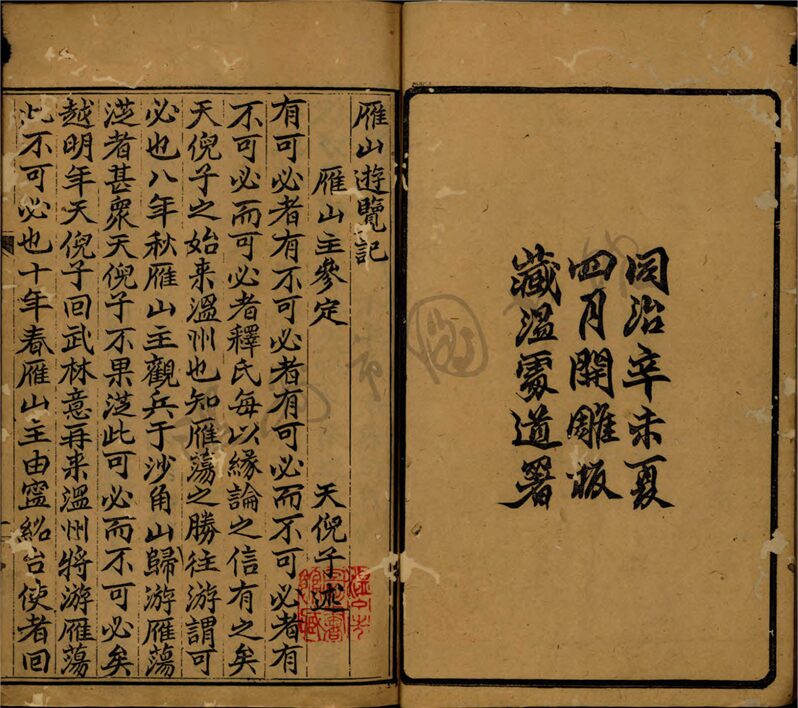 同治辛未夏
四月開雕板
藏溫處道署
雁山遊覽記
雁山主參定
天倪子述
有可必者有不可必者有可必而不可必者有
不可必而可必者釋氏每以緣論之信有之矣
天倪子之始来溫州也知雁蕩之勝往游謂可
必也八年秋雁山主觀兵于沙角山歸游雁蕩
從者甚衆天倪子不果從此可必而不可必矣
越明年天倪子回武林意再来溫州將游雁蕩
此不可必也十年春雁山主由寧紹台使者回